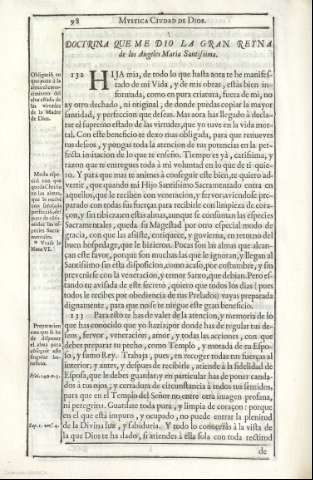 98
MYSTICA CIVDAD DE DIOS.
DOCTRINA QUE ME DIO LA GRAN REYNA
de los Angeles Maria Santissima.
132 HIJA mia, de todo lo que hasta aora te he manifes-
tado de mi Vida, y de mis obras, estàs bien in-
formada, como en pura criatura, fuera de mi, no
ay otro dechado, ni original, de donde puedas copiar la mayor
santidad, y perfeccion que deseas. Mas aora has llegado à decla-
rar el supremo estado de las virtudes, que yo tuve en la vida mor-
tal. Con este beneficio te dexo mas obligada, para que renueves
tus deseos, y pongas toda la atencion de tus potencias en la perfe-
cta imitacion de lo que te enseño. Tiempo es yà, carissima, y
razon que te entregues toda à mi voluntad en lo que de ti quie-
ro. Y para que mas te animes à conseguir este bien, te quiero ad-
vertir, que quando mi Hijo Santissimo Sacramentado entra en
aquellos, que le reciben con veneracion, y fervor, aviendose pre-
parado con todas sus fuerças para recibirle con limpieza de cora-
çon, y sin tibieza en estas almas, aunque se consuman las especies
Sacramentales, queda su Magestad por otro especial modo de
gracia, con que las assiste, enriquece, y govierna, en retorno del
buen hospedage, que le hizieron. Pocas son las almas que alcan-
çan este favor, porque son muchas las que le ignoran, y llegan al
Santissimo sin esta disposicion, como acaso, por costumbre, y sin
prevenirse con la veneracion, y temor Santo, que debian. Pero es-
tando tu avisada de este secreto, quiero que todos los dias (pues
todos le recibes por obediencia de tus Prelados) vayas preparada
dignamente, para que no se te niegue este gran beneficio.
133 Para esto te has de valer de la atencion, y memoria de lo
que has conocido que yo hazia, por donde has de regular tus de-
seos, fervor, veneracion, amor, y todas las acciones, con que
debes preparar tu pecho, como Templo, y morada de tu Espo-
so, y sumo Rey. Trabaja, pues, en recoger todas tus fuerças al
interior; y antes, y despues de recibirle, atiende à la fidelidad de
Esposa, que le debes guardar; y en particular has de poner canda-
dos à tus ojos, y cerradura de circunstancia à todos tus sentidos,
para que en el Templo del Señor no entre otra imagen profana,
ni peregrina. Guardate toda pura, y limpia de coraçon: porque
en el que està impuro, y ocupado, no puede entrar la plenitud
de la Divina luz, y sabiduria. Y todo lo conoceràs à la vista de
la que Dios te ha dado, si atiendes à ella sola con toda rectitud
de